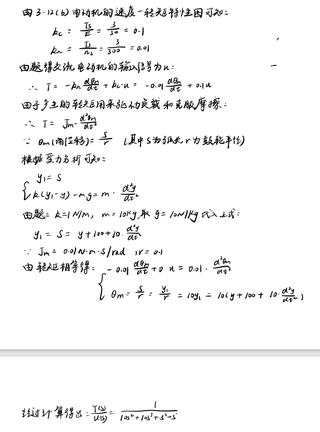 由3-12(b)电动机的速度-转矩特性图可知:
kc = Ts/E = 3/30 = 0.1
kn = Ts/ns = 3/300 = 0.01
由题得交流电动机的输入信号为u:
∴ T = -kn dθm/dt + kc·u = -0.01 dθm/dt + 0.1u
由于产生的转矩用来驱动负载和克服摩擦:
∴ T = Jm· d²θm/dt²
∵ θm(角位移) = S/r (其中S为弧长 r为鼓轮半径)
根据受力分析可知:
{ y₁ = S
k(y₁-y) - mg = m· d²y/dt²
由题: k=1N/m, m=10kg 取 g=10N/kg 代入上式:
y₁ = S = y+100+10· d²y/dt²
∵ Jm = 0.01N·m·S/rad , r=0.1
由转矩相等得: { -0.01 dθm/dt + 0.1u = 0.01· d²θm/dt²
θm = S/r = y₁/r = 10y₁ = 10(y+100+10· d²y/dt²)
经过计算得出: Y(s)/U(s) = 1/(10s⁴+10s³+s²+s)